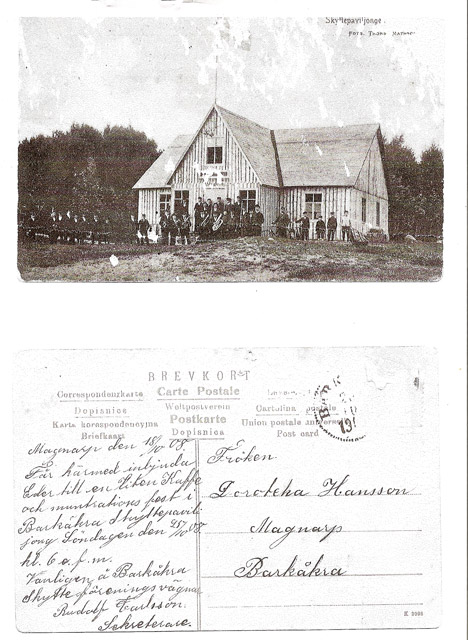 Skyttepaviljonge
Foto. Thure
BREVKORT
Correspondenzkarte Carte Postale
Dopisnice Weltpostverein Cartolina postale
Karta korespondencyjna Postkarte Union postale universelle
Briefkaart Dopisnica Post card
Magnarp den 18/10 08.
Får härmed inbjuda
Eder till en liten Kaffe
och muntrations fest i
Barkåkra Skyttepavil-
jong Söndagen den 25/10 08
kl. 6 e.f.m.
Vänligen å Barkåkra
Skytteförenings vägnar
Rudolf Carlsson.
Sekreterare.
Fröken
Dorothea Hansson
Magnarp
Barkåkra